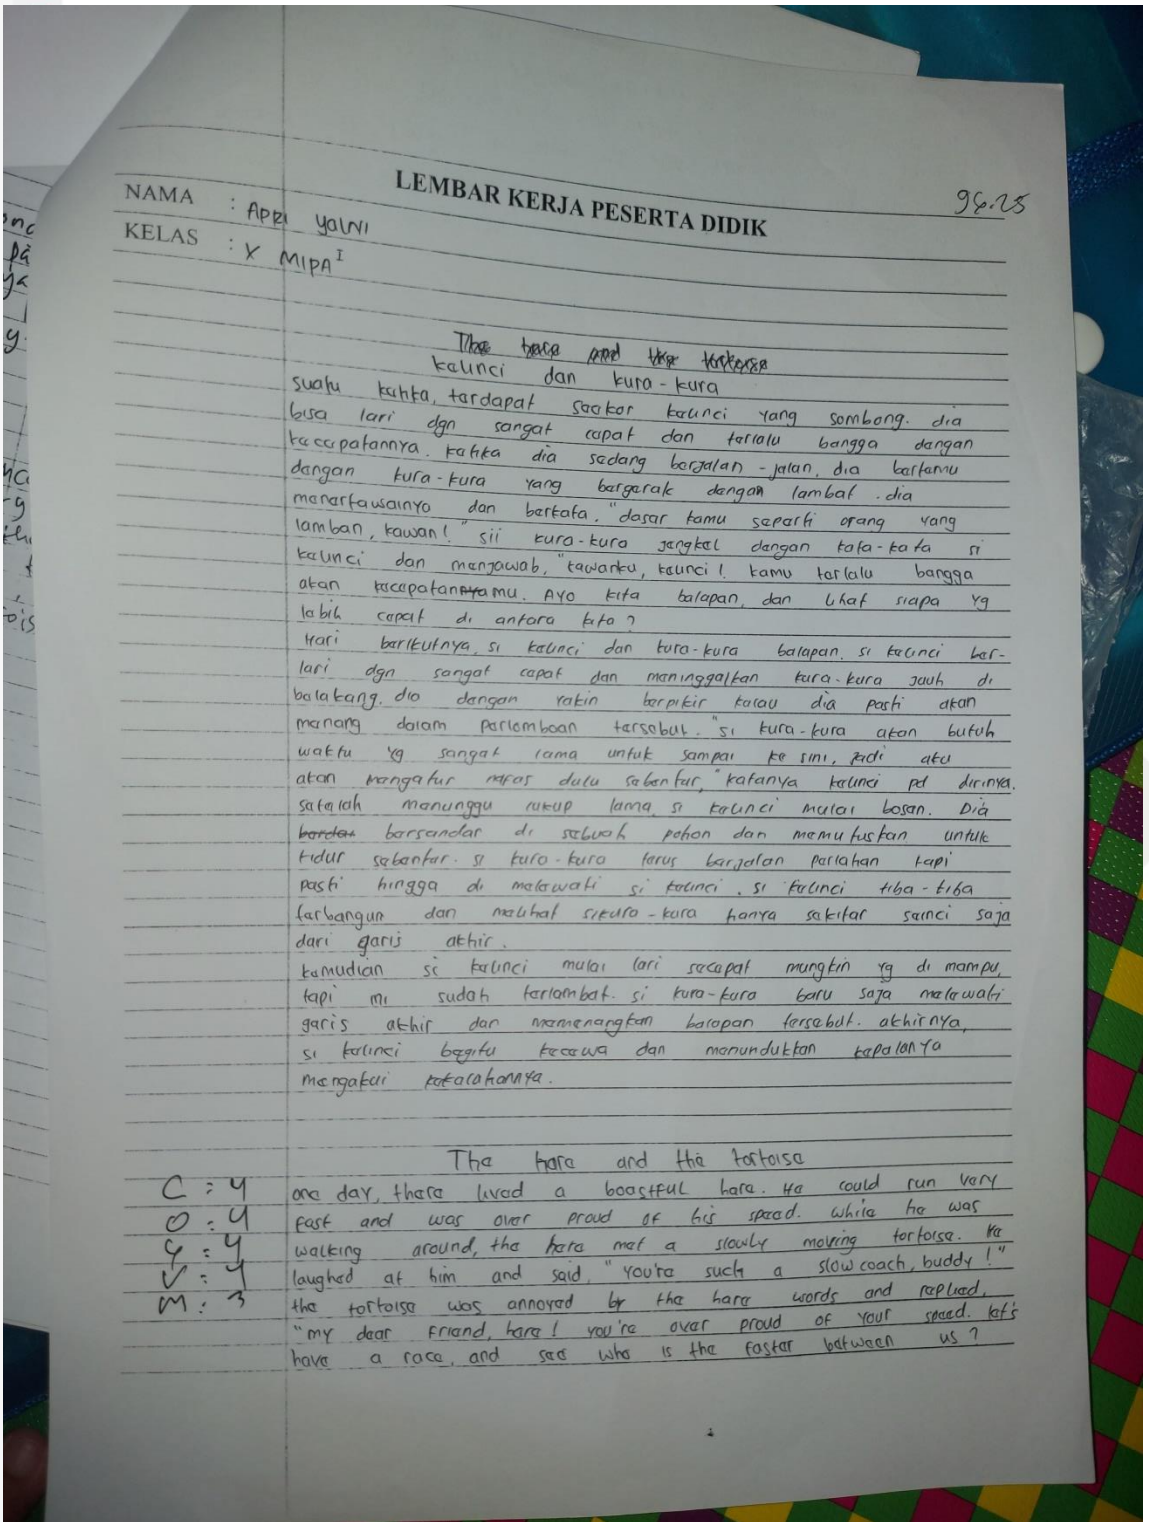 LEMBAR KERJA PESERTA DIDIK
94.25
NAMA : APRI YALNI
KELAS : X MIPA I
The hare and the tortoise
kelinci dan kura-kura
suatu ketika, terdapat seekor kelinci yang sombong. dia
bisa lari dgn sangat cepat dan terlalu bangga dengan
kecepatannya. ketika dia sedang berjalan-jalan, dia bertemu
dengan kura-kura yang bergerak dengan lambat. dia
menertawainya dan berkata, "dasar kamu seperti orang yang
lamban, kawan!" sii kura-kura jengkel dengan kata-kata si
kelinci dan menjawab, "kawanku, kelinci! kamu terlalu bangga
akan kecepatanmu. Ayo kita balapan, dan lihat siapa yg
lebih cepat di antara kita?
Hari berikutnya, si kelinci dan kura-kura balapan. si kelinci ber-
lari dgn sangat cepat dan meninggalkan kura-kura jauh di
belakang. dia dengan yakin berpikir kalau dia pasti akan
menang dalam perlombaan tersebut. "si kura-kura akan butuh
waktu yg sangat lama untuk sampai ke sini, jadi aku
akan mengatur nafas dulu sebentar," katanya kelinci pd dirinya.
setelah menunggu cukup lama, si kelinci mulai bosan. Dia
bersandar di sebuah pohon dan memutuskan untuk
tidur sebentar. si kura-kura terus berjalan perlahan tapi
pasti hingga di melewati si kelinci. si kelinci tiba-tiba
terbangun dan melihat sikura-kura hanya sekitar seinci saja
dari garis akhir.
kemudian si kelinci mulai lari secepat mungkin yg di mampu,
tapi ini sudah terlambat. si kura-kura baru saja melewati
garis akhir dan memenangkan balapan tersebut. akhirnya,
si kelinci begitu kecewa dan menundukkan kepalanya
mengakui kekalahannya.
The hare and the tortoise
C : 4 one day, there lived a boastful hare. He could run very
O : 4 fast and was over proud of his speed. while he was
G : 4 walking around, the hare met a slowly moving tortoise. He
V : 4 laughed at him and said, "you're such a slow coach, buddy!"
M : 3 the tortoise was annoyed by the hare words and replied,
"my dear Friend, hare! you're over proud of your speed. let's
have a race, and see who is the faster between us?
1